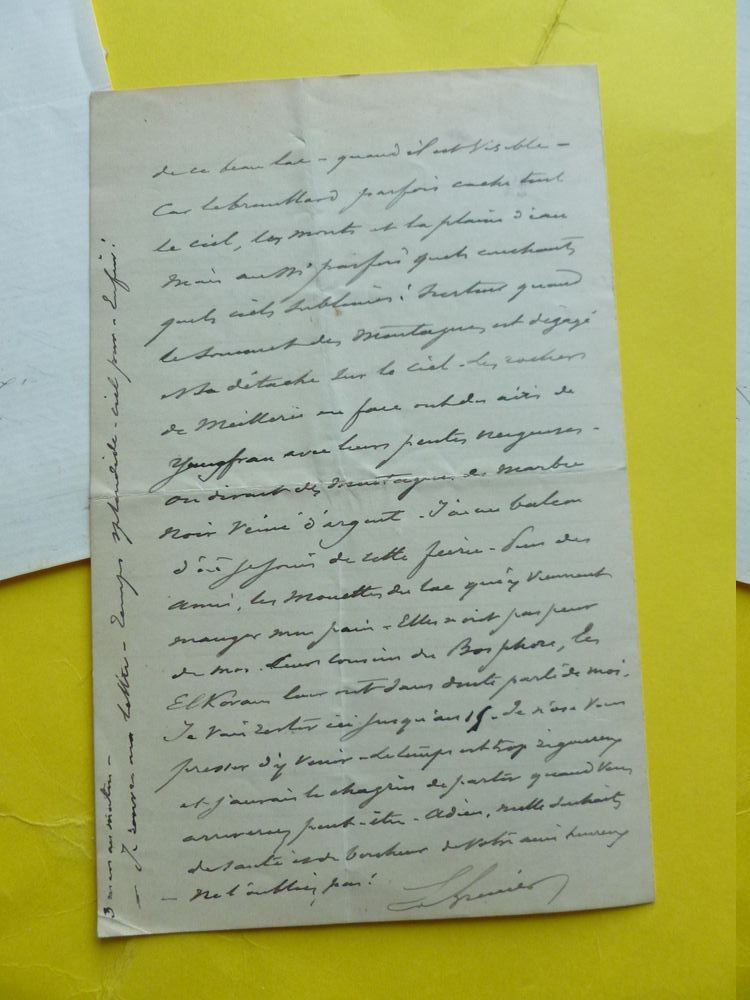 de ce beau lac – quand il est visible –
Car le brouillard parfois cache tout
le ciel, les monts et la plaine d'eau
Mais aussi parfois quels couchants
quels ciels sublimes! Surtout quand
le sommet des Montagnes est dégagé
et se détache sur le ciel – Les rochers
de Meillerie en face ont des airs de
Yungfrau avec leurs pentes neigeuses –
On dirait des montagnes de marbre
noir veiné d'argent – J'ai un balcon
d'où je jouis de cette féerie –
amis, les Mouettes du lac qui y viennent
manger mon pain – Elles n'ont pas peur
de moi. Leurs cousins du Bosphore, les
El Kovans leur ont sans doute parlé de moi.
Je vais rester ici jusqu'au 15 – Je n'ose vous
presser d'y venir – le temps est trop rigoureux
et j'aurais le chagrin de partir quand vous
arriverez peut-être – Adieu, mille souhaits
de santé et de bonheur de votre ami
– Ne l'oubliez pas!
3 mars au matin –
– Je rouvre ma lettre – Temps splendide – ciel pur – Enfin!